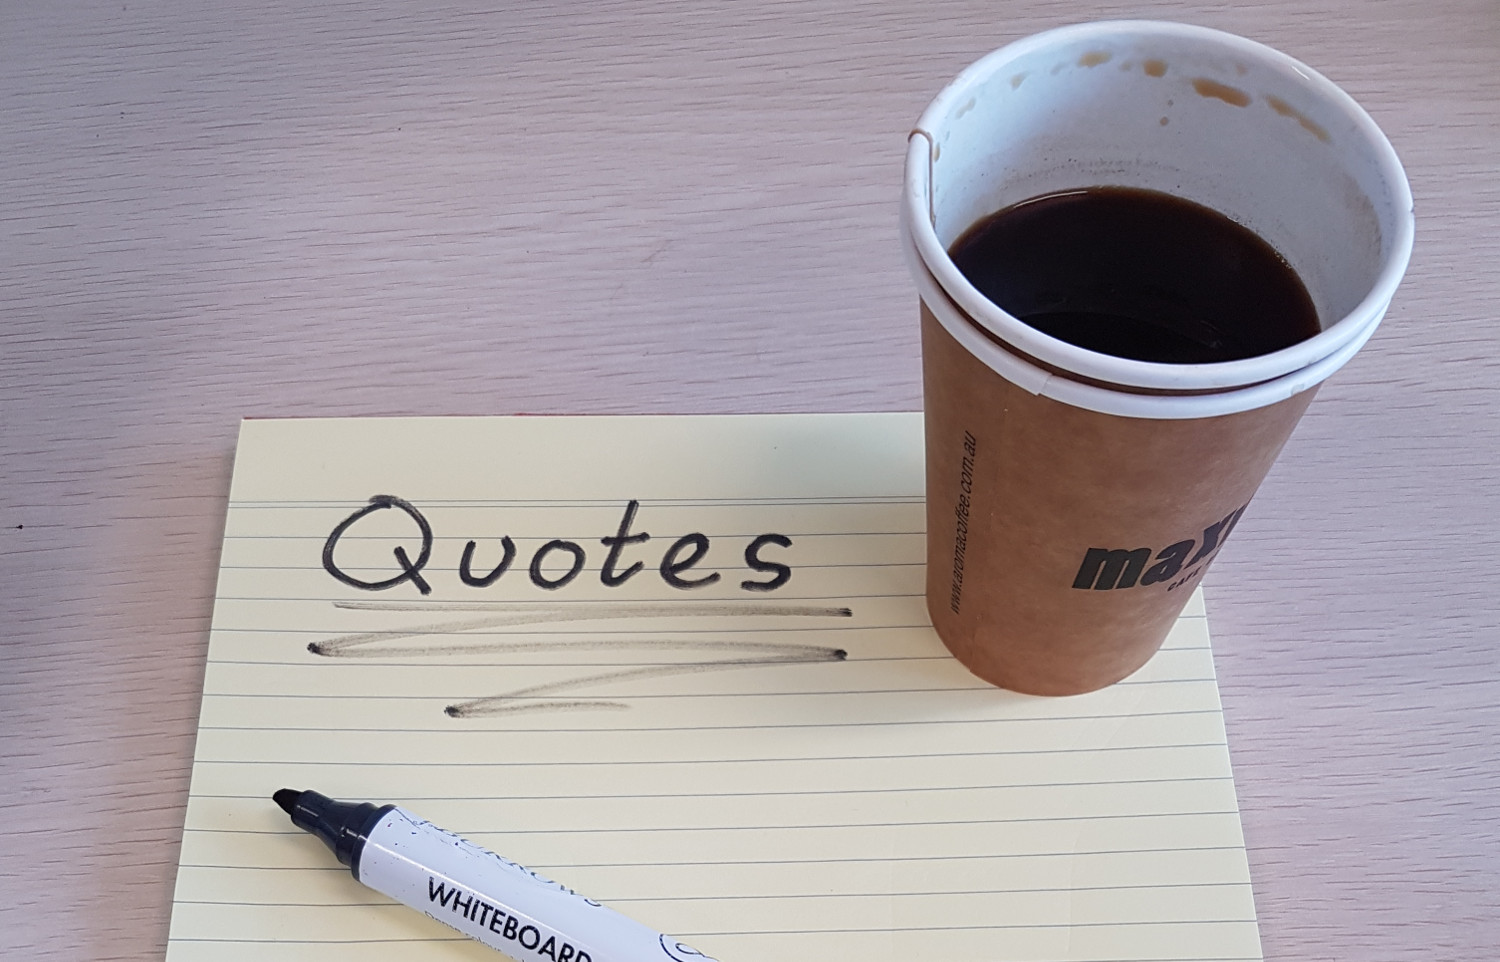 Quotes
www.aromacoffee.com.au
WHITEBOARD